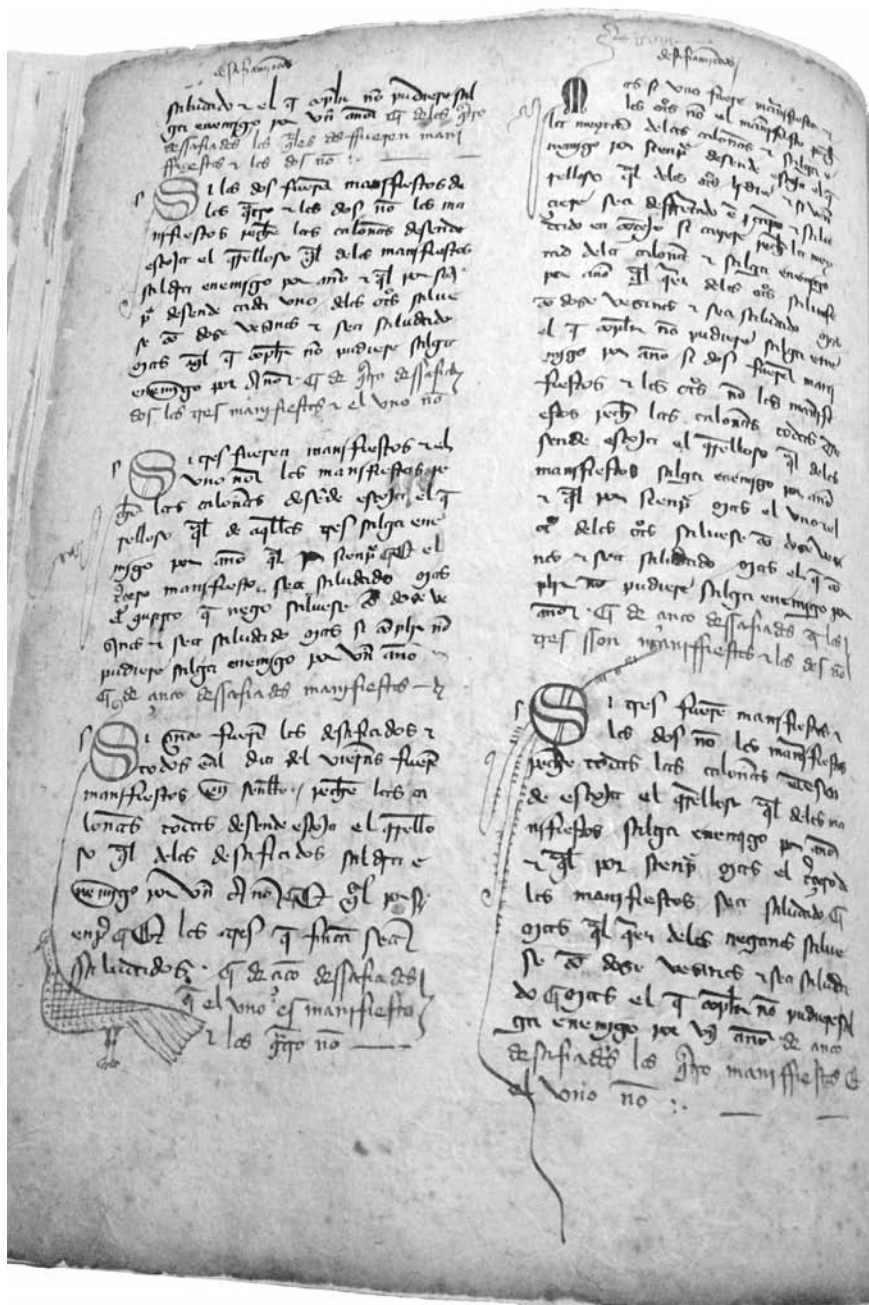 desafiamientos
saludado & el q̄ conplir nō pudiere sal
ga enemigo por vn̄ ano
dessafiados los q̄les dos fueren mani
ffiestos & los dos nō
Si los dos fuerē manifiestos de
los q̄tro & los dos nō los ma
nifiestos pechē las calonas desende
escoja el q̄relloso q̄l delos manifiestos
saldra enemigo por ano & q̄l por siē
p̄ desende cada vno delos otros salue
se cō doze vezinos & sea saludado
mas aql̄ q̄ conplir nō pudiere salga
enemigo por Ano de q̄tro dessafia
dos los tres manifiestos & el vno nō
Si tres fueren manifiestos & el
vno nō los manifiestos pe
chē las calonas desēde escoja el q̄
relloso q̄l de aq̄llos tres salga ene
migo por ano q̄l por sienp̄ & el
t̄cero manifiesto sea saludado mas
el quarto q̄ nego saluese cō doze ve
zinos & sea saludado mas si conplir nō
pudiere salga enemigo por vn̄ ano
de cinco dessafiados manifiestos
Si cinco fuerē los desafiados &
todos enl̄ dia del viernes fuerē
manifiestos pechē las ca
lonas todas desende escoja el q̄rello
so q̄l delos desafiados saldra e
nemigo por vn̄ Ano & q̄l por si
enp̄ & los tres q̄ fincā seā
saludados de cinco dessafiados
q̄ el vno es manifiesto
& los q̄tro nō
desafiamientos
Mas si vno fuere manifiesto &
los otros nō el manifiesto pechē
la meytad delas calonas & salga e
nemigo por sienp̄ desende escoja el q̄
relloso q̄l delos otros lidie & si
ciere sea desfaciado ē & salu
dado en conçejo si cayere pechē la mey
tad dela calona & salga enemigo
por ano q̄l q̄er delos otros saluese
cō doze vezinos & sea saludado mas
el q̄ conplir nō pudiere salga ene
migo por ano si dos fuerē mani
fiestos & los otros nō los manifi
estos pechē las calonas todas de
sende escoja el q̄relloso q̄l delos
manifiestos salga enemigo por ano
& q̄l por sienp̄ mas el vno
delos otros saluese cō doze vezi
nos & sea saludado mas el q̄ cō
plir nō pudiere salga enemigo por
ano de cinco dessafiados q̄ los
tres sson maniffiestos & los dos nō
Si tres fuerē manifiestos &
los dos nō los manifiestos
pechē todas las calonas desen
de escoja el q̄relloso q̄l delos ma
nifiestos salga enemigo por ano
& q̄l por sienp̄ mas el t̄cero de
los manifiestos sea saludado
mas q̄l q̄er delos negants salue
se cō doze vezinos & sea saluda
do mas el q̄ conplir nō pudiere sal
ga enemigo por vn̄ ano de cinco
desafiados los q̄tro maniffiestos &
el vno nō